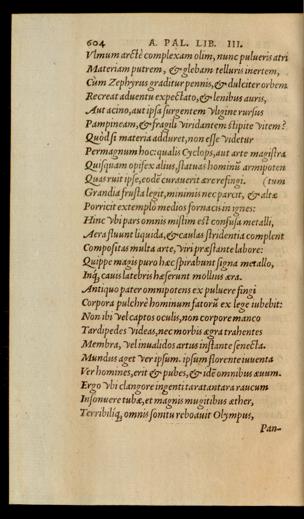 604 A. PAL. LIB. III.
Vlmum arctè complexam olim, nunc pulueris atri
Materiam putrem, & glebam telluris inertem,
Cùm Zephyrus graditur pennis, & dulciter orbem
Recreat aduentu expectato, & lenibus auris,
Aut acino, aut ipsa surgentem vligine rursus
Pampineam, & fragili viridantem stipite vitem?
Quòd si materia adduret, non esse videtur
Permagnum hoc: qualis Cyclops, aut arte magistra
Quisquam opifex alius, statuas hominũ armipotentũ
Quas ruit ipse, eodẽ curauerit ære refingi. (tum
Grandia frusta legit, minimis nec parcit, & altæ
Porricit extemplo medios fornacis in ignes:
Hinc vbi pars omnis mistim est confusa metalli,
Aera fluunt liquida, & caulas stridentia complent
Compositas multa arte, viri præstante labore:
Quippe magis puro hæc spirabunt signa metallo,
Inq́; cauis latebris hæserunt mollius æra.
Antiquo pater omnipotens ex puluere fingi
Corpora pulchrè hominum fatorũ ex lege iubebit:
Non ibi vel captos oculis, non corpore manco
Tardipedes videas, nec morbis ægra trahentes
Membra, vel inualidos artus instante senecta.
Mundus aget ver ipsum. ipsum florente iuuenta
Ver homines, erit & pubes, & idẽ omnibus æuum.
Ergo vbi clangore ingenti taratantara raucum
Insonuere tubæ, et magnis mugitibus æther,
Terribiliq́; omnis sonitu reboauit Olympus,
Pan-